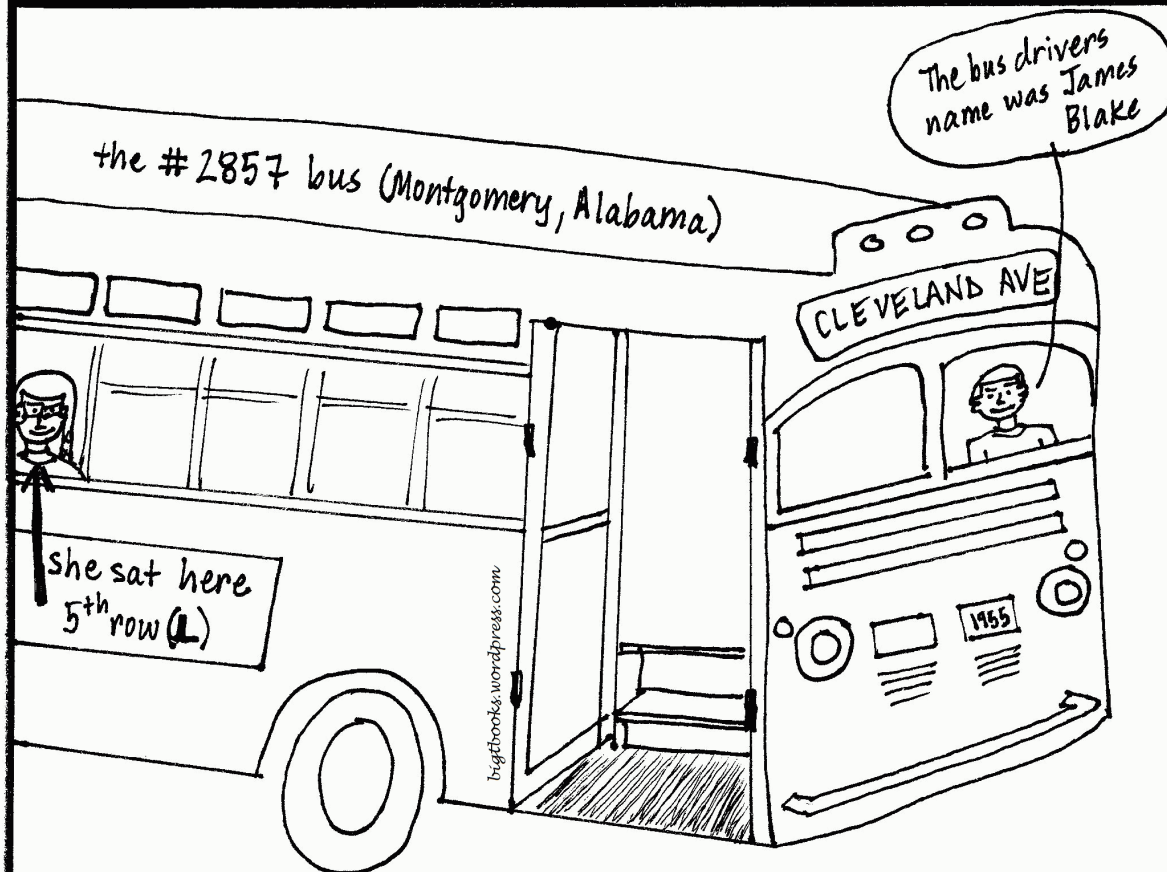 The bus drivers
name was James
Blake
the #2857 bus (Montgomery, Alabama)
CLEVELAND AVE
she sat here
5th row (L)
1955
bigtbooks.wordpress.com